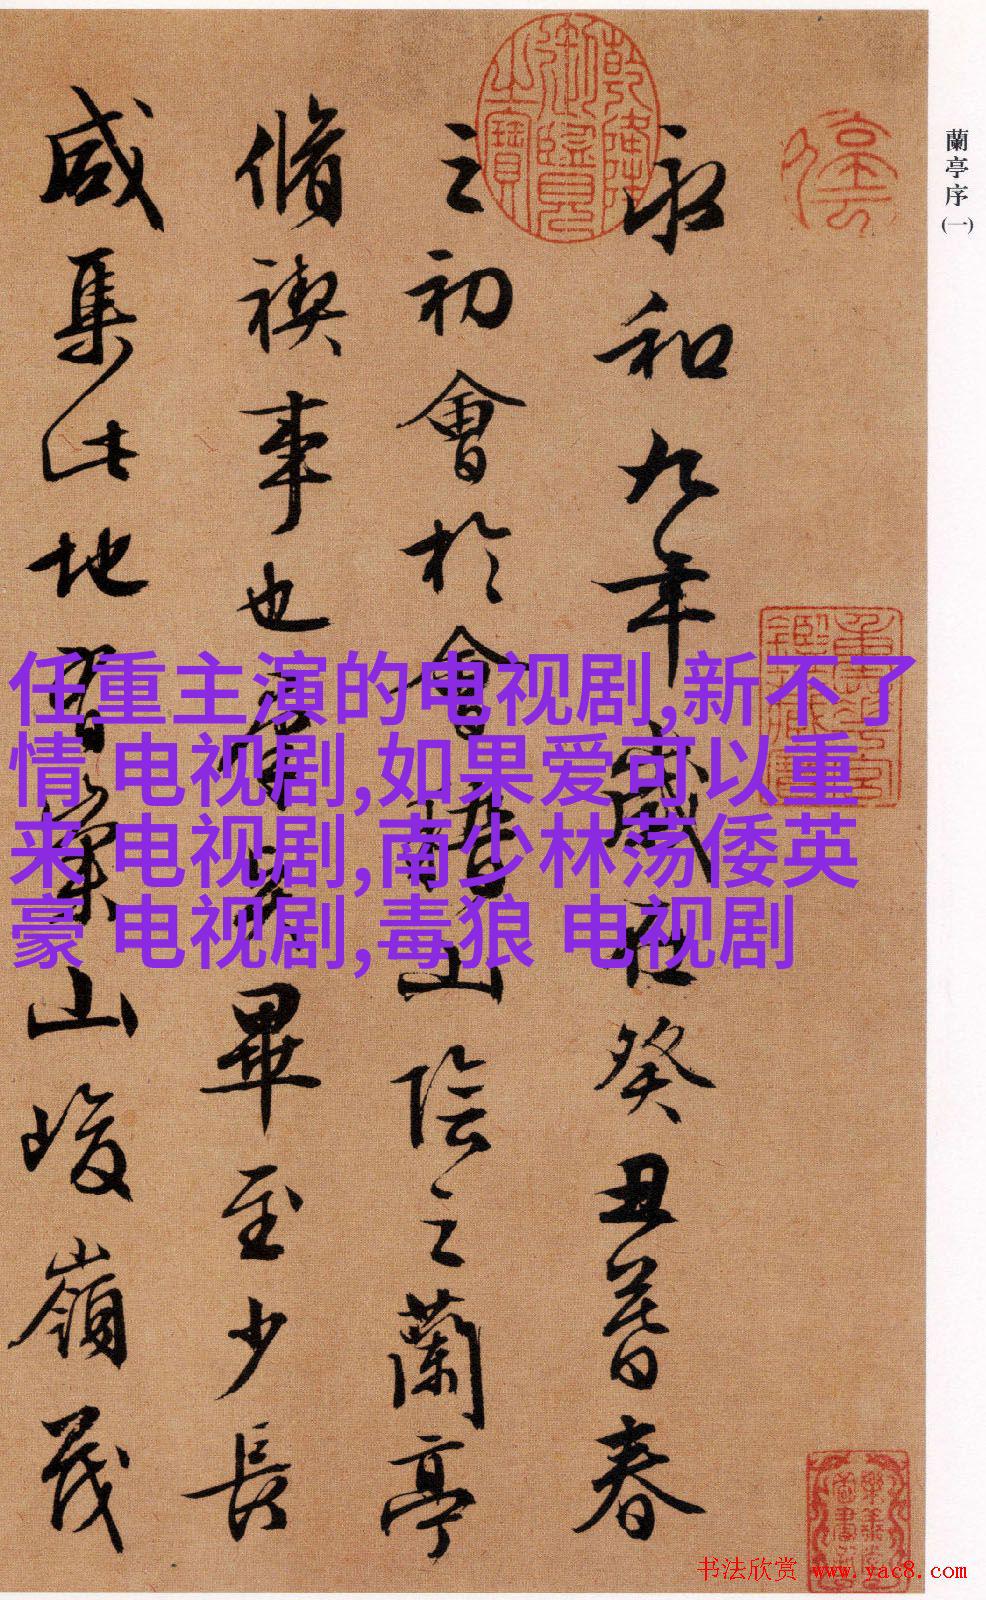 蘭亭序
(一)
永和九年歲在癸丑暮春
之初會於會稽山陰之蘭亭
脩禊事也羣賢畢至少長
咸集此地山峻嶺茂
乾隆御覽之寶
任重主演的电视剧,新不了
情 电视剧,如果爱可以重
来 电视剧,南少林荡倭英
豪 电视剧,毒狼 电视剧
书法欣赏 www.yac8.com